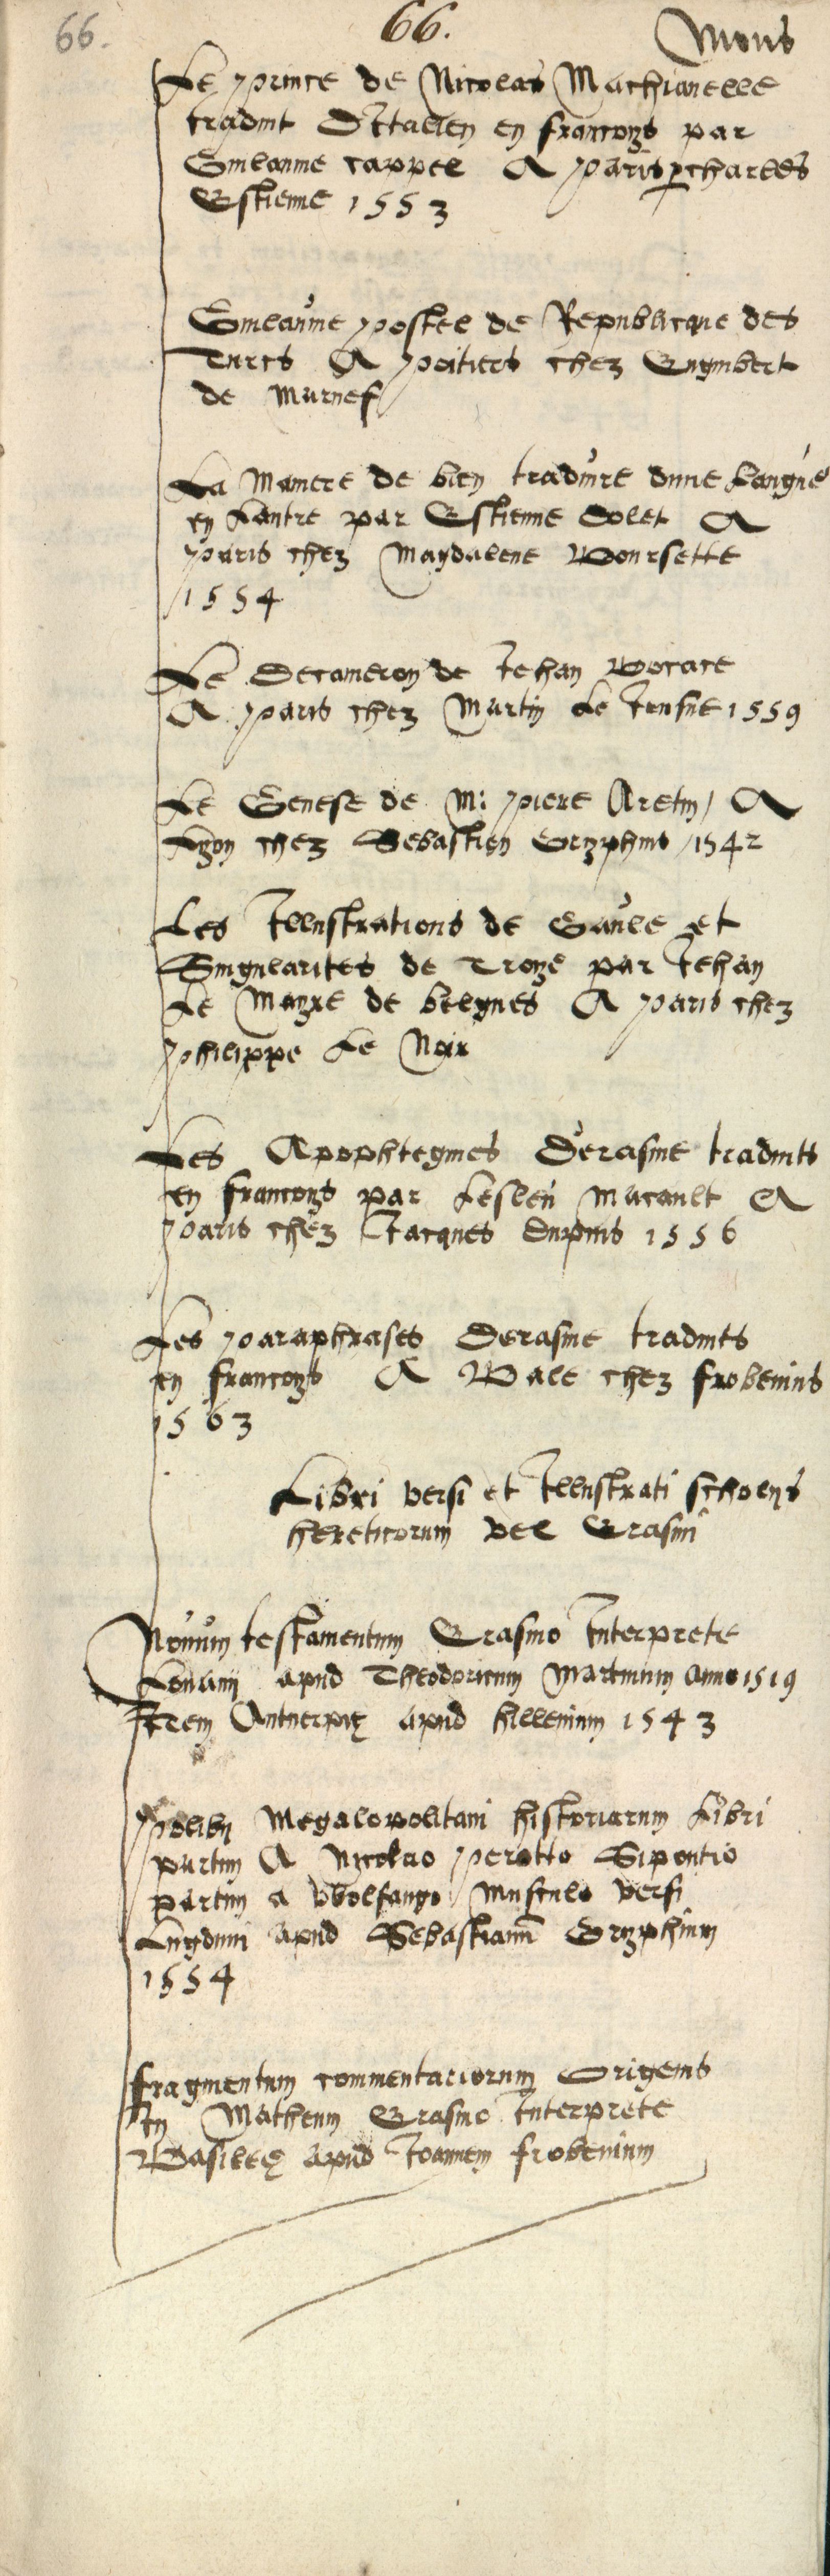 66. 66. Mons
Le prince de Nicolas Machiauelle
traduit D'Itallien en francoys par
Guilaume cappel A paris p charles
Estienne 1553
Guilaume postel de Republicque des
Turcs A poitiers chez Engimbert
de Murnef
La maniere de bien traduire dune Langue
en Lautre par Estienne Dolet A
paris chez Magdalene Boursette
1554
Le Decameron de Jehan Bocace
A paris chez Martin Le Jeusne 1559
Le Genese de M: piere Aretin / A
Lyon chez Sebastien Gryphius / 1542
Les Illustrations de Gaule et
Singularites de Troye par Jehan
Le Mayre de belgues A paris chez
philippe Le Noir
Les Apophtegmes D'erasme traduits
en francoys par Lesleu Macault A
paris chez Jacques Dupuis 1556
Les paraphrases Derasme traduits
en francoys A Bale chez frobenius
1563
Libri versi et Illustrati scholijs
hereticorum vel Erasmi
Nouum testamentum Erasmo Interprete
Louanij apud Theodoricum Martinum Anno 1519
Item Antuerpię apud hillenium 1543
polibij Megalopolitani historiarum Libri
partim A Nicolao perotto Sipontio
partim a vvolfango Musculo versi
Lugduni apud Sebastianū Gryphium
1554
fragmentum commentariorum Origenis
In Matheum Erasmo Interprete
Basileę apud Joannem frobenium